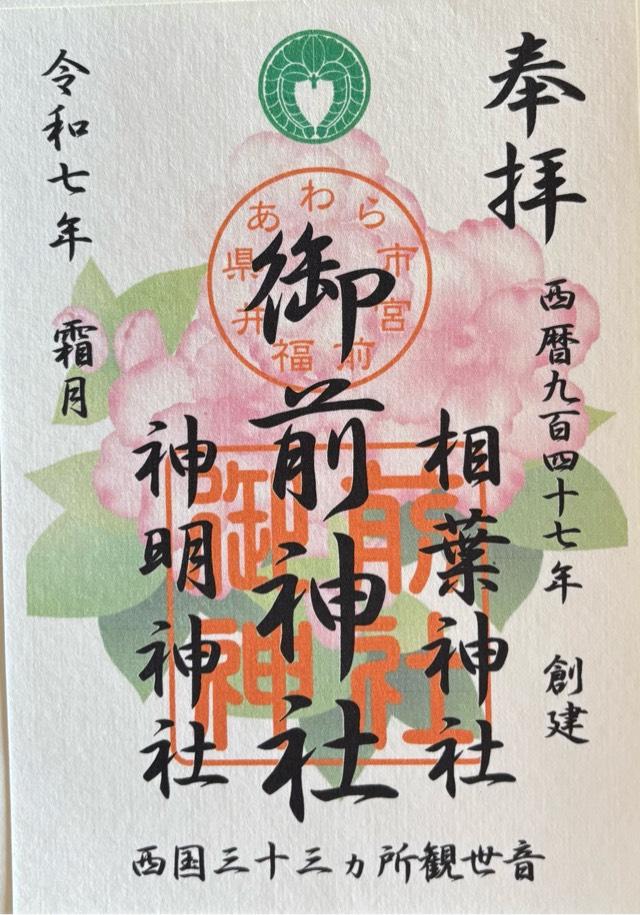 奉拝
西暦九百四十七年 創建
相葉神社
御前神社
神明神社
令和七年 霜月
西国三十三ヵ所観世音
あわら市宮前
福井県
御前神社